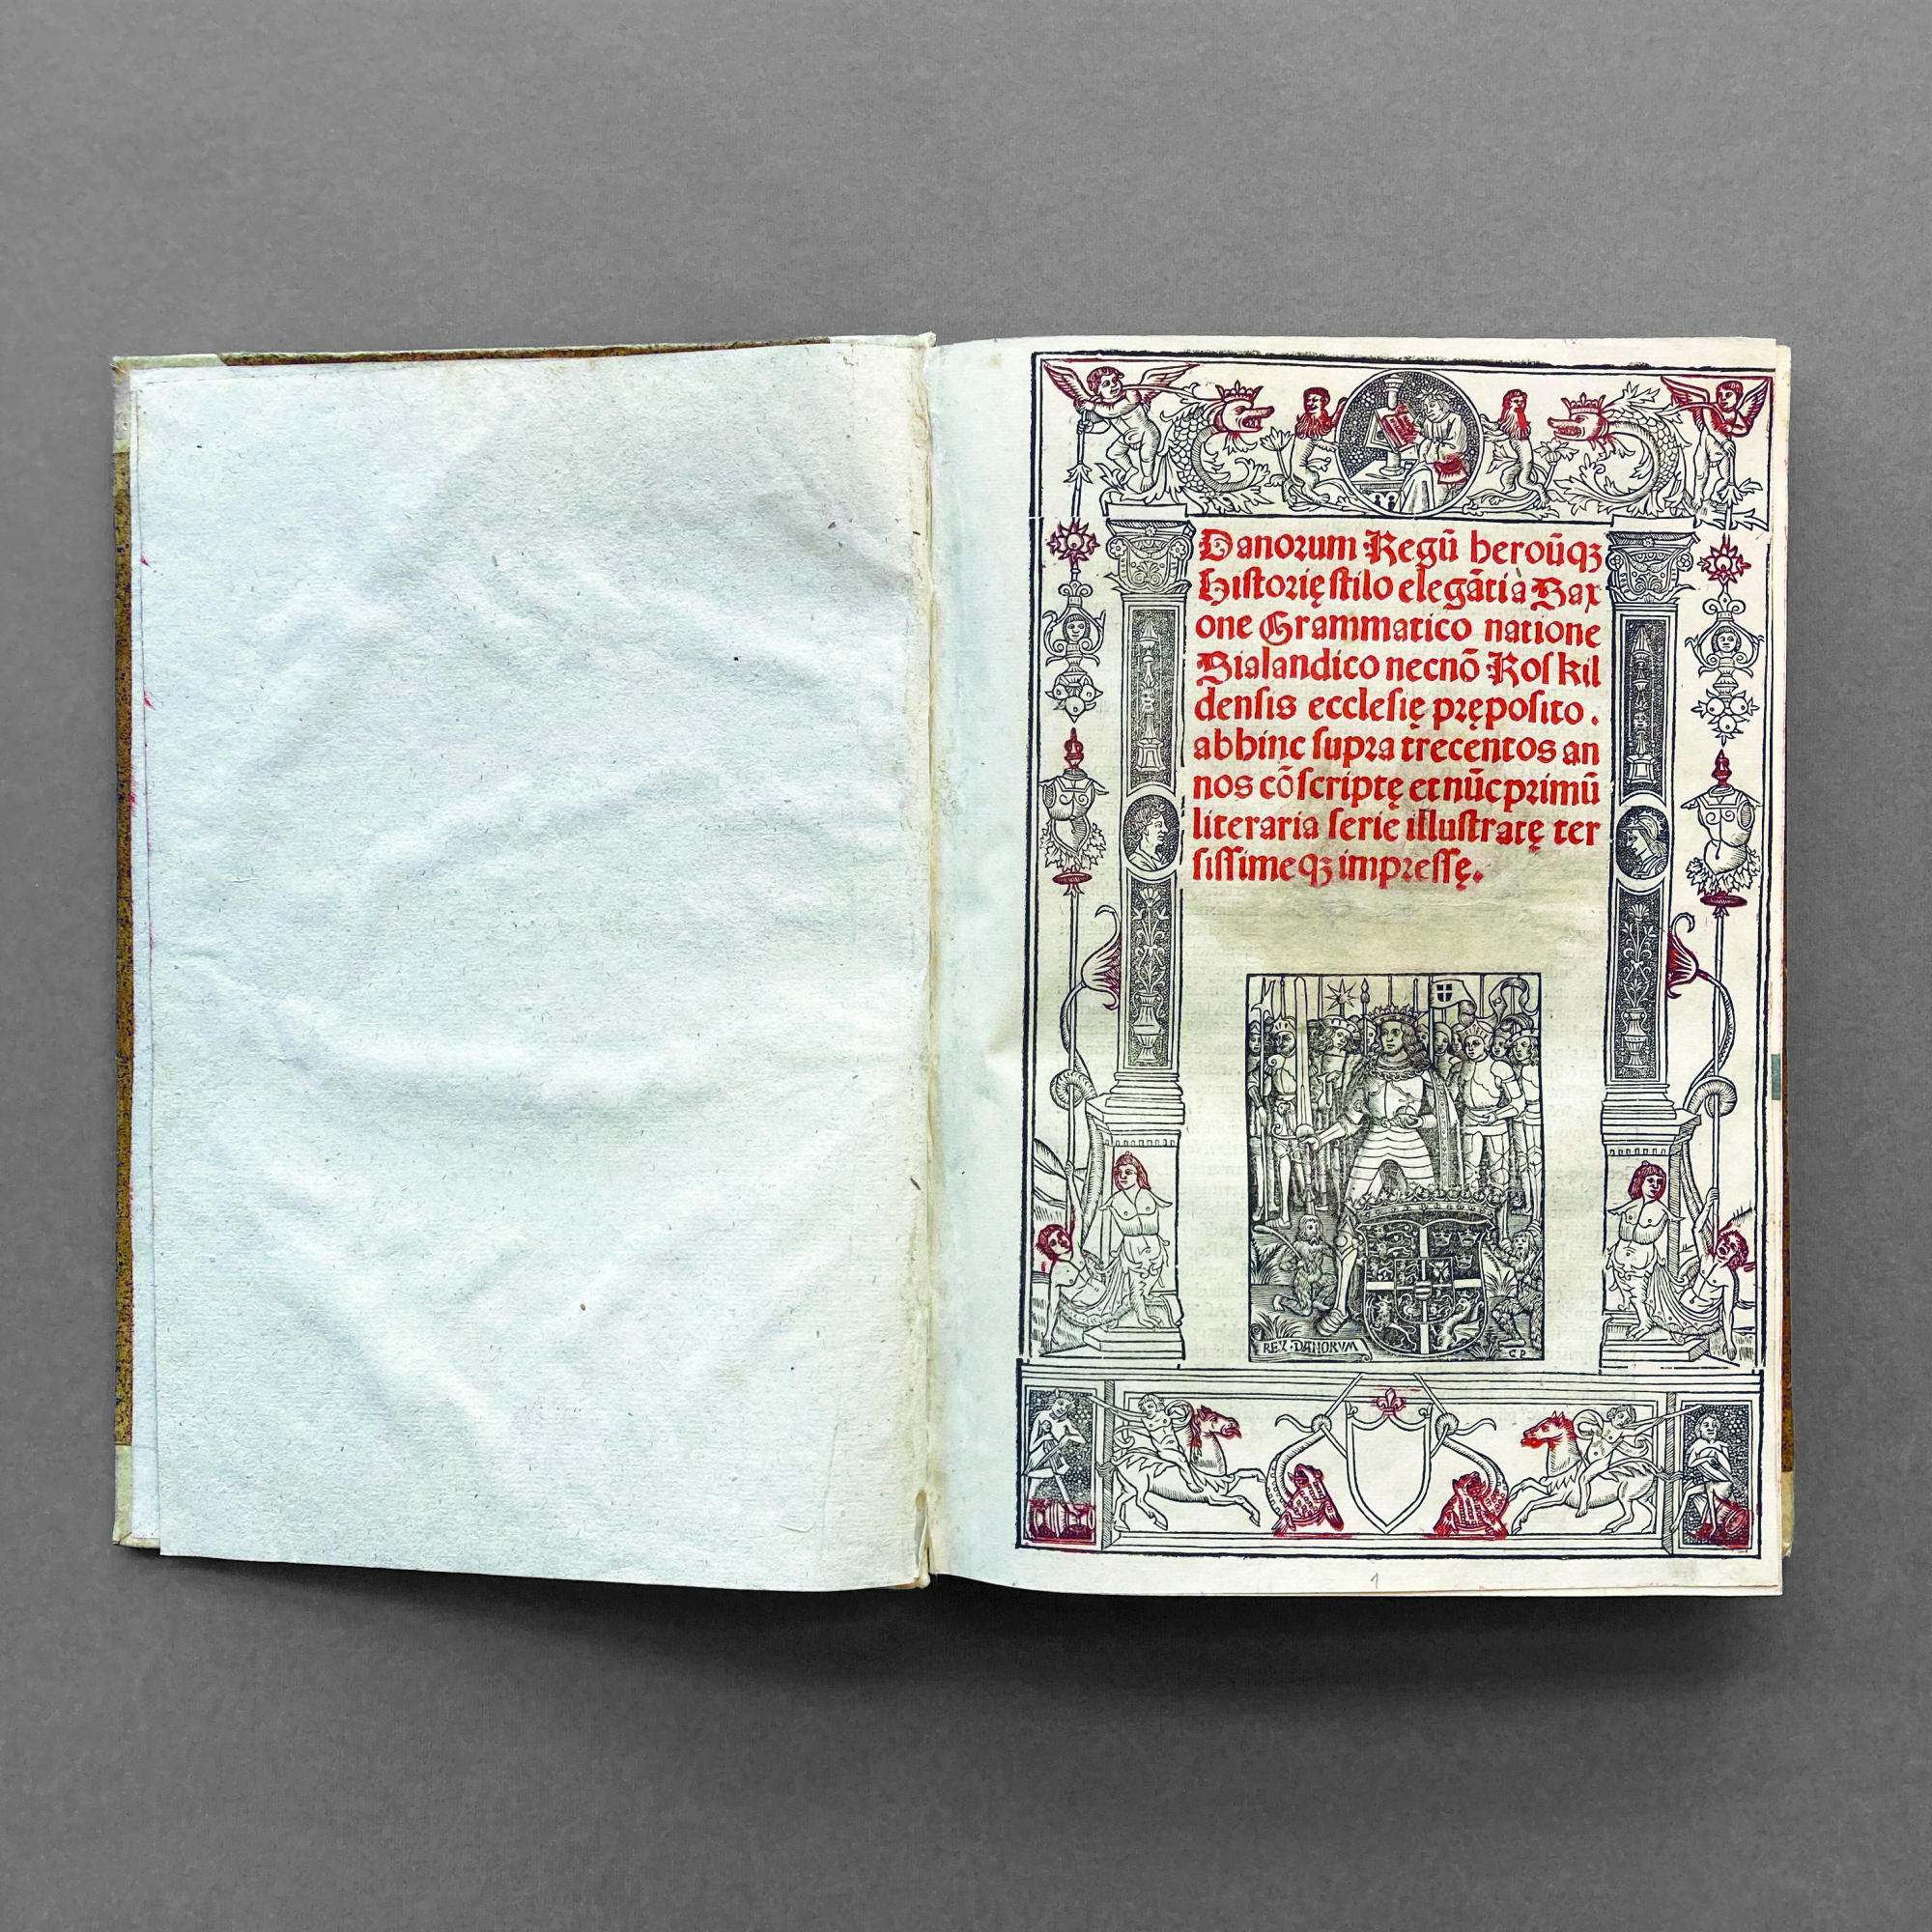 Danorum Regū heroūqꝫ
Historię stilo elegāti à Sax
one Grammatico natione
Sialandico necnō Roskil
densis ecclesię pręposito.
abhinc supra trecentos an
nos cōscriptę et nūc primū
literaria serie illustratę ter
sissimeqꝫ impressę.
REX·DANORVM
C P
1